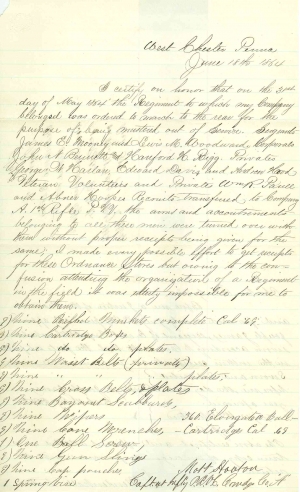 West Chester Penna
June 18th 1864
I certify on honor that on the 31st
day of May 1864 the Regiment to which my Company
belonged was ordered to march to the rear for the
purpose of being mustered out of Service. Sergeants
James E. Mooney and Lewis M. Woodward, Corporals
John A. Bennett & Hanford K. Rigg. Privates
George W. Edward Davis and
Veteran Volunteers and Privates Wm K.
and Abner Hooper Recruits transferred to Company
A. 1st Rifle P.V. the arms and accoutrements
belonging to men were turned over with
them without proper receipts being given for the
same, I made every possible effort to get receipts
for these Ordnance Stores but owing to the con-
fusion attending the organization of a Regiment
in the field it was utterly impossible for me to
obtain them.
9) Nine Enfield Muskets complete Cal
9) Nine Cartridge Boxes
9) Nine do do plates
9) Nine Waist Belts (privates)
9) Nine " " plates
9) Nine Cross Belts, & plates
9) Nine Bayonet Scabbards,
9) Nine Wipers 360 Elongated Ball
9) Nine Cone Wrenches, Cartridges Cal. 69
1) One Ball Screw,
9) Nine Gun Slings
9) Nine Cap pouches
1 Spring vise
Mott Hooton
Capt Comdg Co A